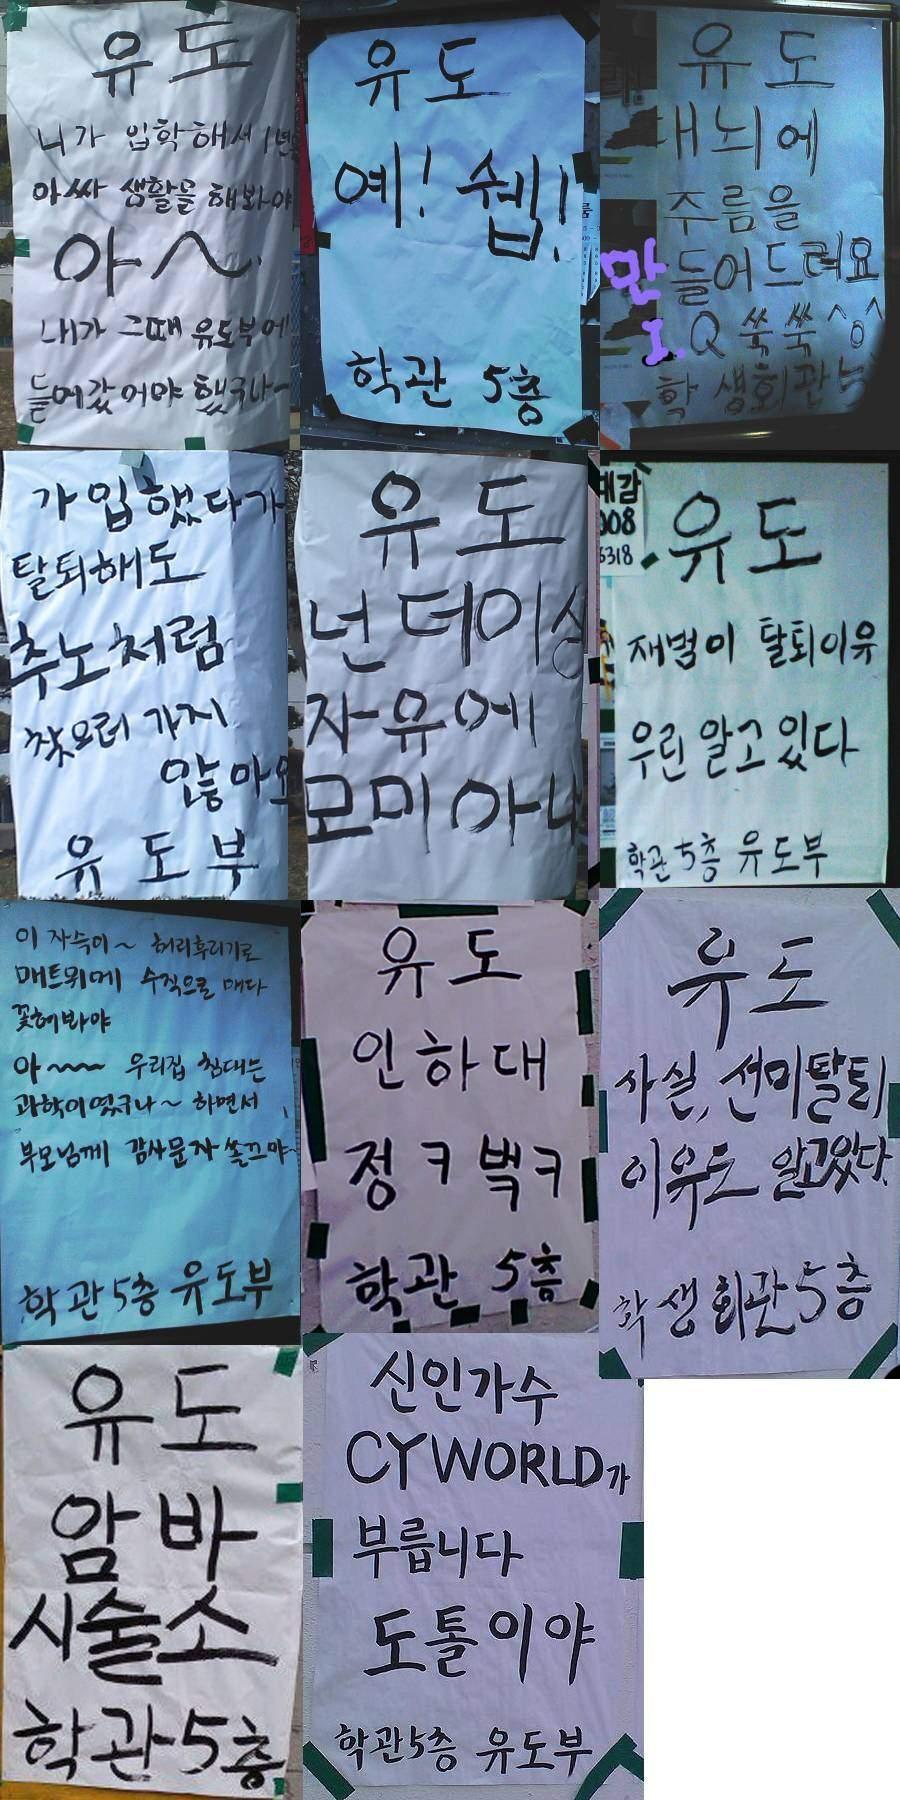 유도
니가 입학해서 1년
아싸 생활을 해봐야
아~
내가 그때 유도부에
들어갔어야 했구나~
유도
예! 쉡!
학관 5층
유도
대뇌에
주름을
만들어드려요
I.Q 쑥쑥 ^o^
학생회관
가입했다가
탈퇴해도
추노처럼
찾으러 가지
않아요
유도부
유도
넌 더이상
자유에
모미 아냐
예감
008
6318
유도
재범이 탈퇴이유
우린 알고있다
학관 5층 유도부
이 자슥이~ 허리후리기로
매트위에 수직으로 매다
꽂혀봐야
아~~~ 우리집 침대는
과학이였구나~ 하면서
부모님께 감사문자 쏠끄야
학관 5층 유도부
유도
인하대
정ㅋ벅ㅋ
학관 5층
유도
사실, 선미탈퇴
이유도 알고있다
학생회관5층
유도
암바
시술소
학관5층
신인가수
CYWORLD가
부릅니다
도톨이야
학관5층 유도부